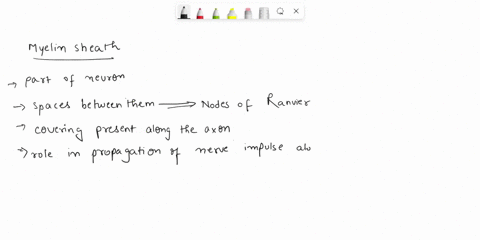 Myelin sheath
→ part of neuron
→ spaces between them ⟶ Nodes of Ranvier
→ covering present along the axon
→ role in propagation of nerve impulse alo